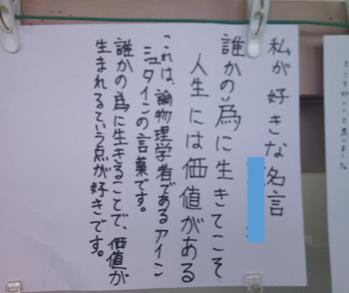 私が好きな名言
誰かの為に生きてこそ
人生には価値がある
これは、論物理学者であるアイン
シュタインの言葉です。
誰かの為に生きることで、価値が
生まれるという点が好きです。